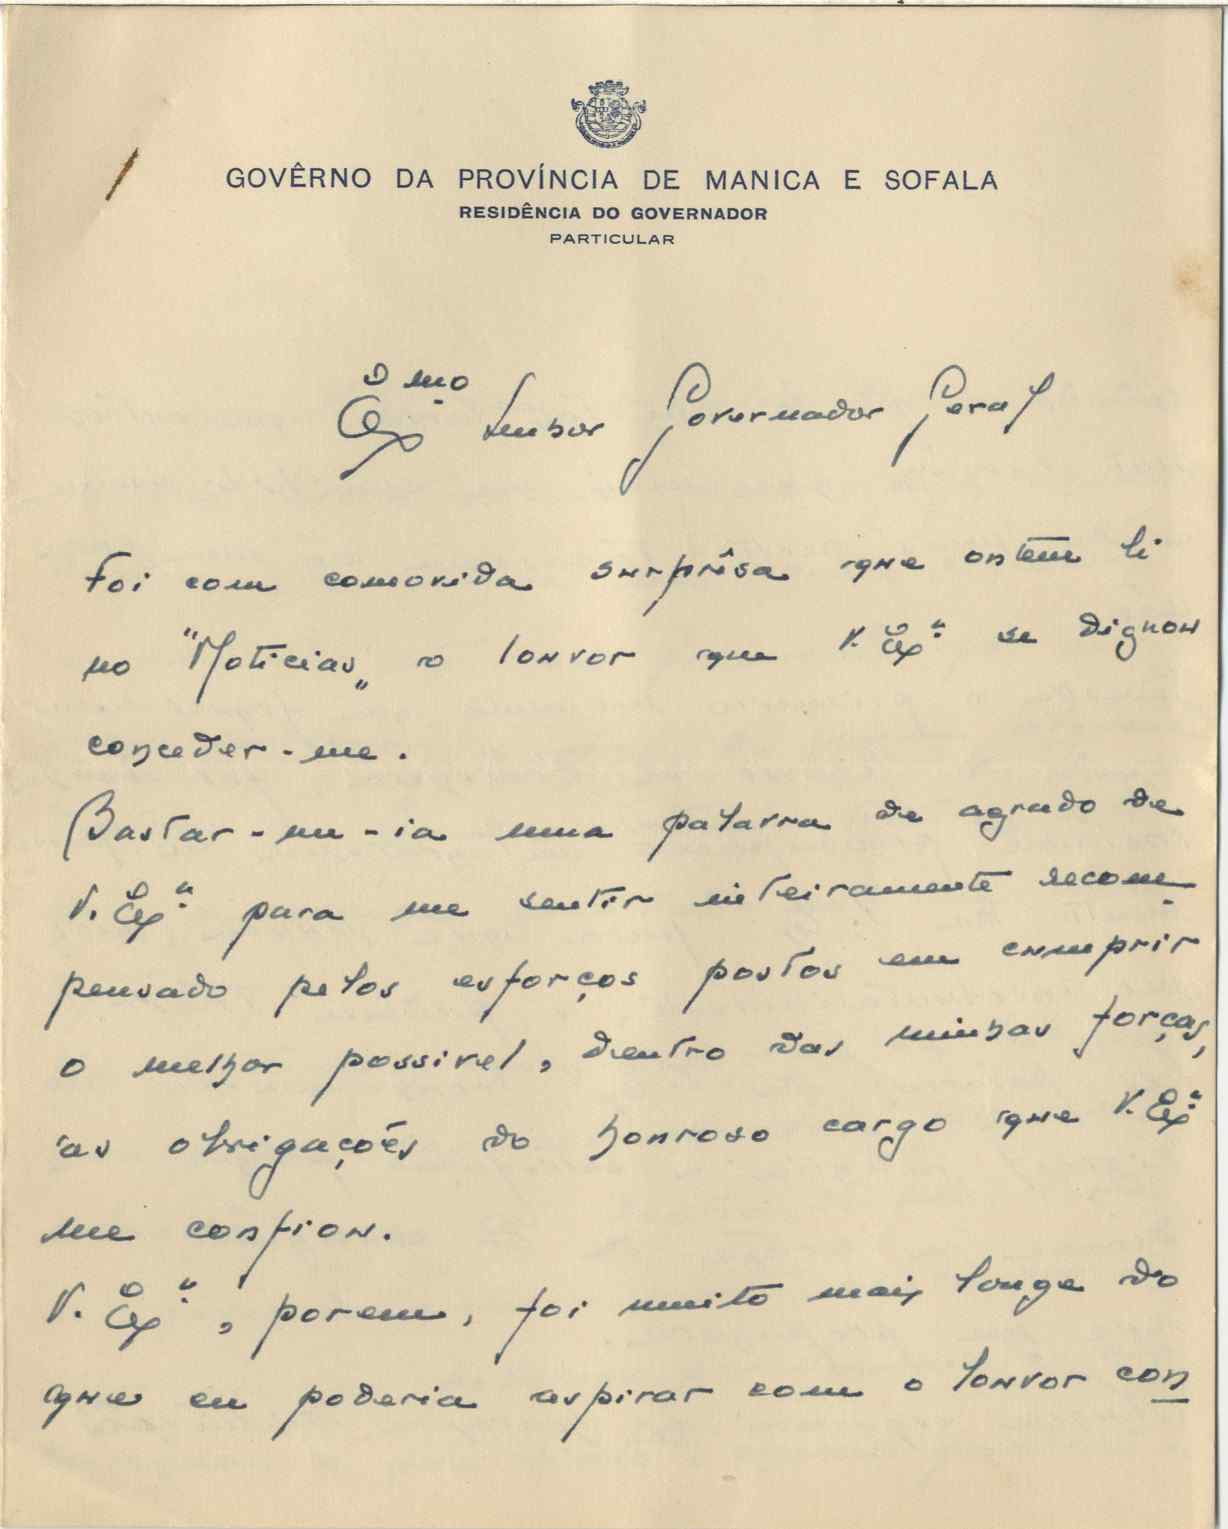 GOVÊRNO DA PROVÍNCIA DE MANICA E SOFALA
RESIDÊNCIA DO GOVERNADOR
PARTICULAR
Exmo Senhor Governador Geral
Foi com comovida surprêsa que ontem li
no "Noticias„ o louvor que V. Exª se dignou
conceder-me.
Bastar-me-ia uma palavra de agrado de
V. Exª para me sentir inteiramente recom
pensado pelos esforços postos em cumprir
o melhor possivel, dentro das minhas forças,
as obrigações do honroso cargo que V. Exª
me confiou.
V. Exª, porem, foi muito mais longe do
que eu poderia aspirar com o louvor con